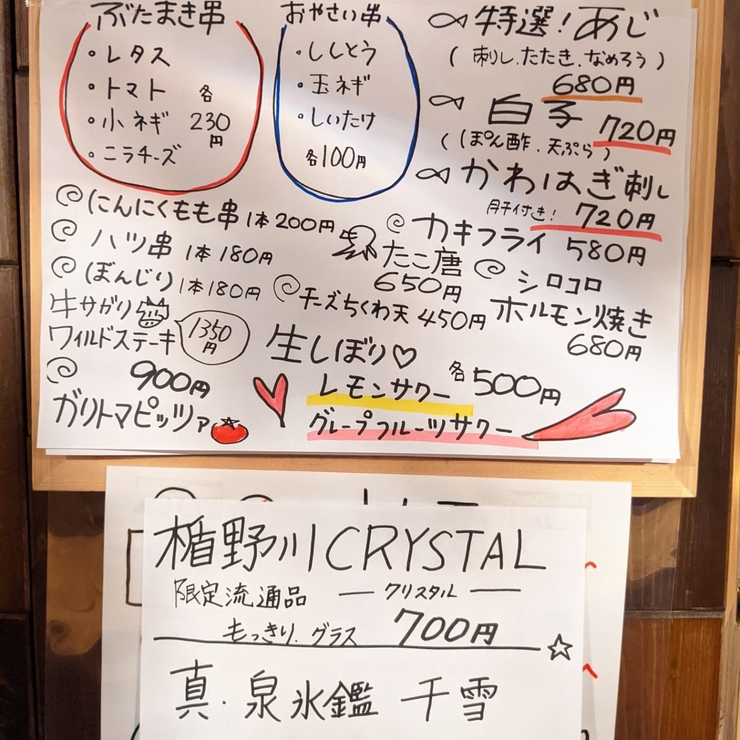 ぶたまき串
・レタス
・トマト
・小ネギ
・ニラチーズ
各
230
円
おやさい串
・ししとう
・玉ネギ
・しいたけ
各100円
特選!あじ
(刺し.たたき.なめろう)
680円
白子 720円
(ぽん酢.天ぷら)
かわはぎ刺し
肝付き! 720円
にんにくもも串 1本200円
ハツ串 1本180円
ぼんじり 1本180円
牛サガリ
ワイルドステーキ
1350
円
900円
ガリトマピッツァ
カキフライ 580円
たこ唐
650円
チーズちくわ天 450円
シロコロ
ホルモン焼き
680円
生しぼり♡
レモンサワー
グレープフルーツサワー
各500円
楯野川CRYSTAL
限定流通品 ―クリスタル―
もっきり.グラス 700円
真・泉氷鑑 千雪